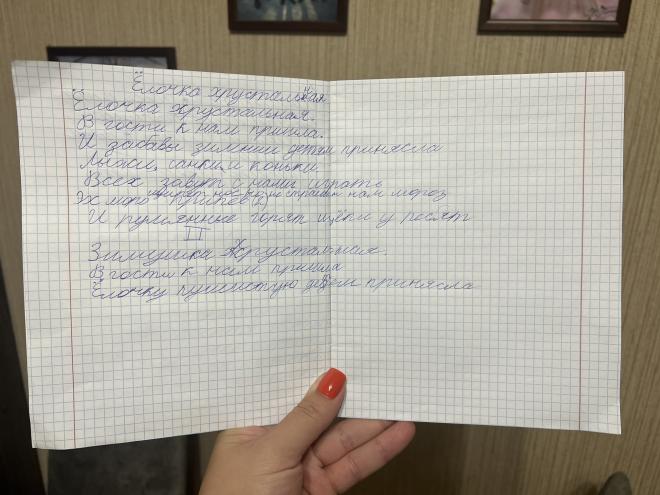 Ёлочка хрустальная
Ёлочка хрустальная.
В гости к нам пришла.
И забавы зимний детям принясла
Лыжи, санки, и коньки.
Всех завут с нами играть
Эх моро нос но не страшен нам мороз
Припев:
И румяные горят щёки у ребят
II
Зимушка Хрустальная.
В гости к нам пришла
Ёлочку пушистую детям принясла